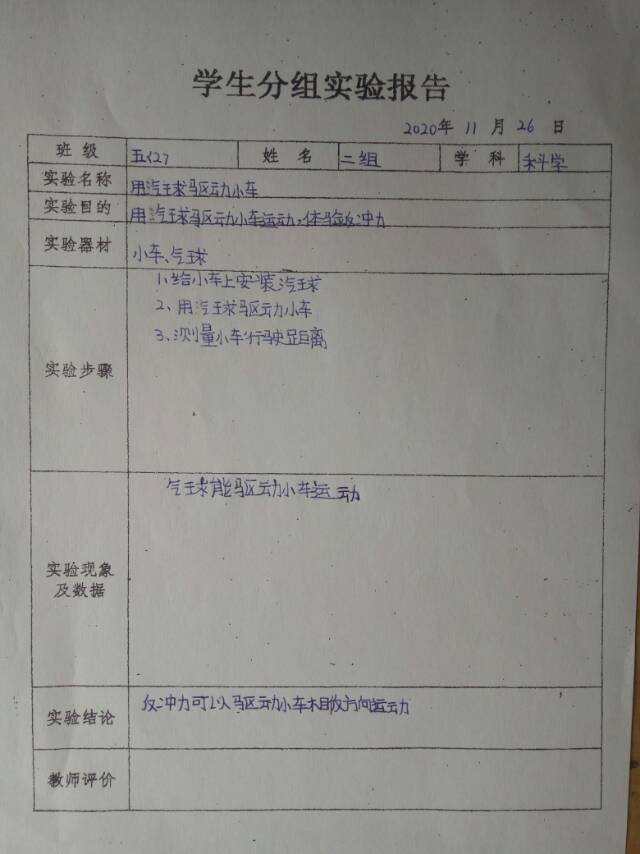 学生分组实验报告
2020年 11 月 26 日
班级 五(2) 姓名 二组 学科 科学
实验名称 用汽球驱动小车
实验目的 用汽球驱动小车运动,体验反冲力
实验器材 小车、气球
1、给小车上安装汽球
2、用汽球驱动小车
3、测量小车行驶距离
实验步骤
气球能驱动小车运动
实验现象
及数据
实验结论 反冲力可以驱动小车相反方向运动
教师评价